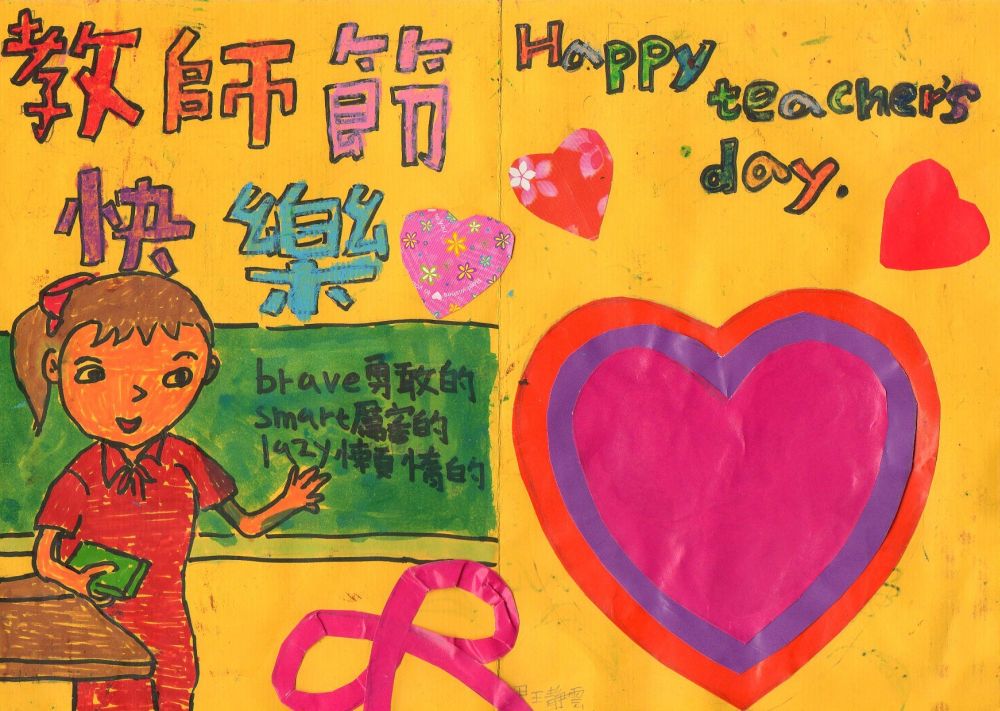 教師節
快樂
Happy
teacher's
day.
brave勇敢的
smart厲害的
lazy懶惰的
王靜雲